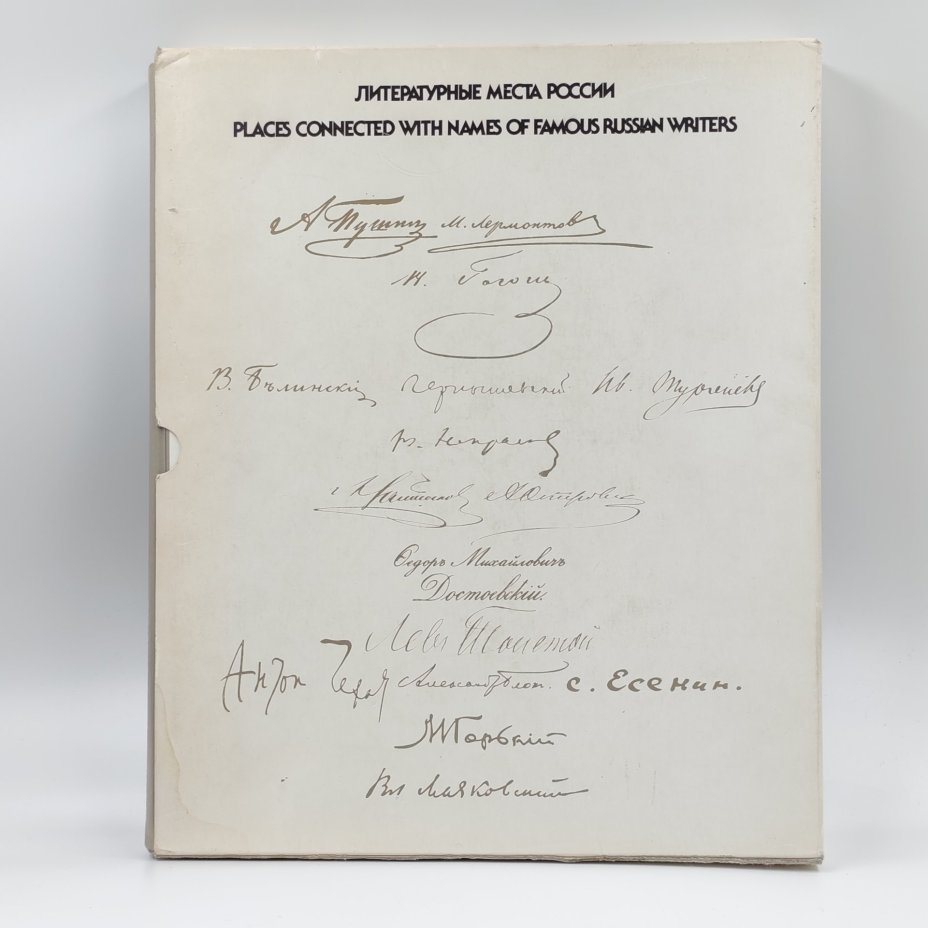 ЛИТЕРАТУРНЫЕ МЕСТА РОССИИ
PLACES CONNECTED WITH NAMES OF FAMOUS RUSSIAN WRITERS
А Пушкин М. Лермонтов
Н. Гоголь
В. Бѣлинскій Чернышевский Ив. Тургеневъ
Н. Некрасов
Салтыков А Островский
Ѳедоръ Михайловичъ
Достоевскій.
Левъ Толстой
Антон Чехов Александр Блок. С. Есенин.
М Горький
Вл Маяковский